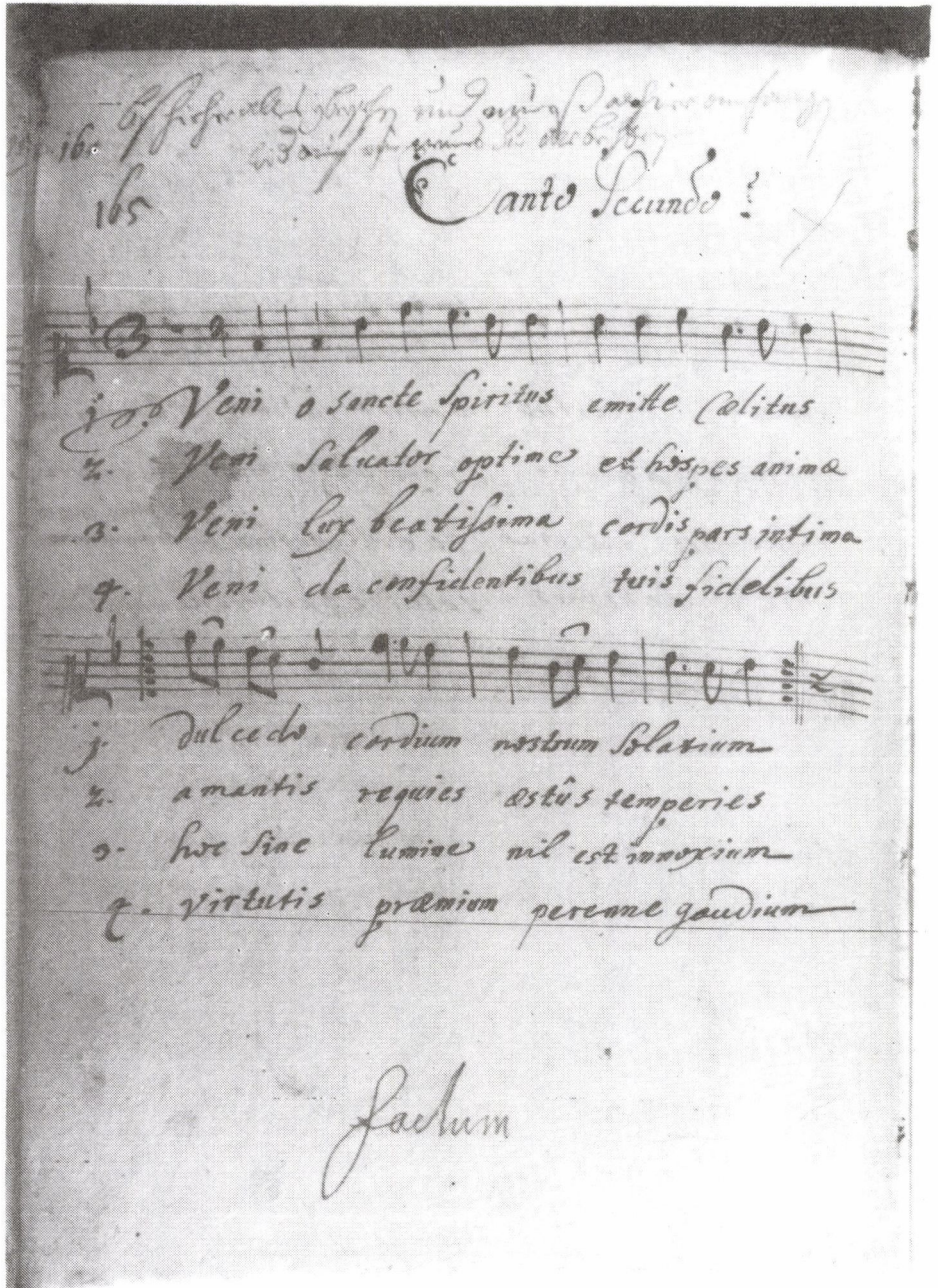 und
165 Canto Secundo
1. Veni o sancte Spiritus emitte Cælitus
2. Veni Saluator optime et hospes animæ
3. Veni lux beatissima cordis pars intima
4. Veni da confidentibus tuis fidelibus
1. dulcedo cordium nostrum solatium
2. amantis requies æstûs temperies
3. hoc sine lumine nil est innoxium
4. virtutis præmium perenne gaudium
factum